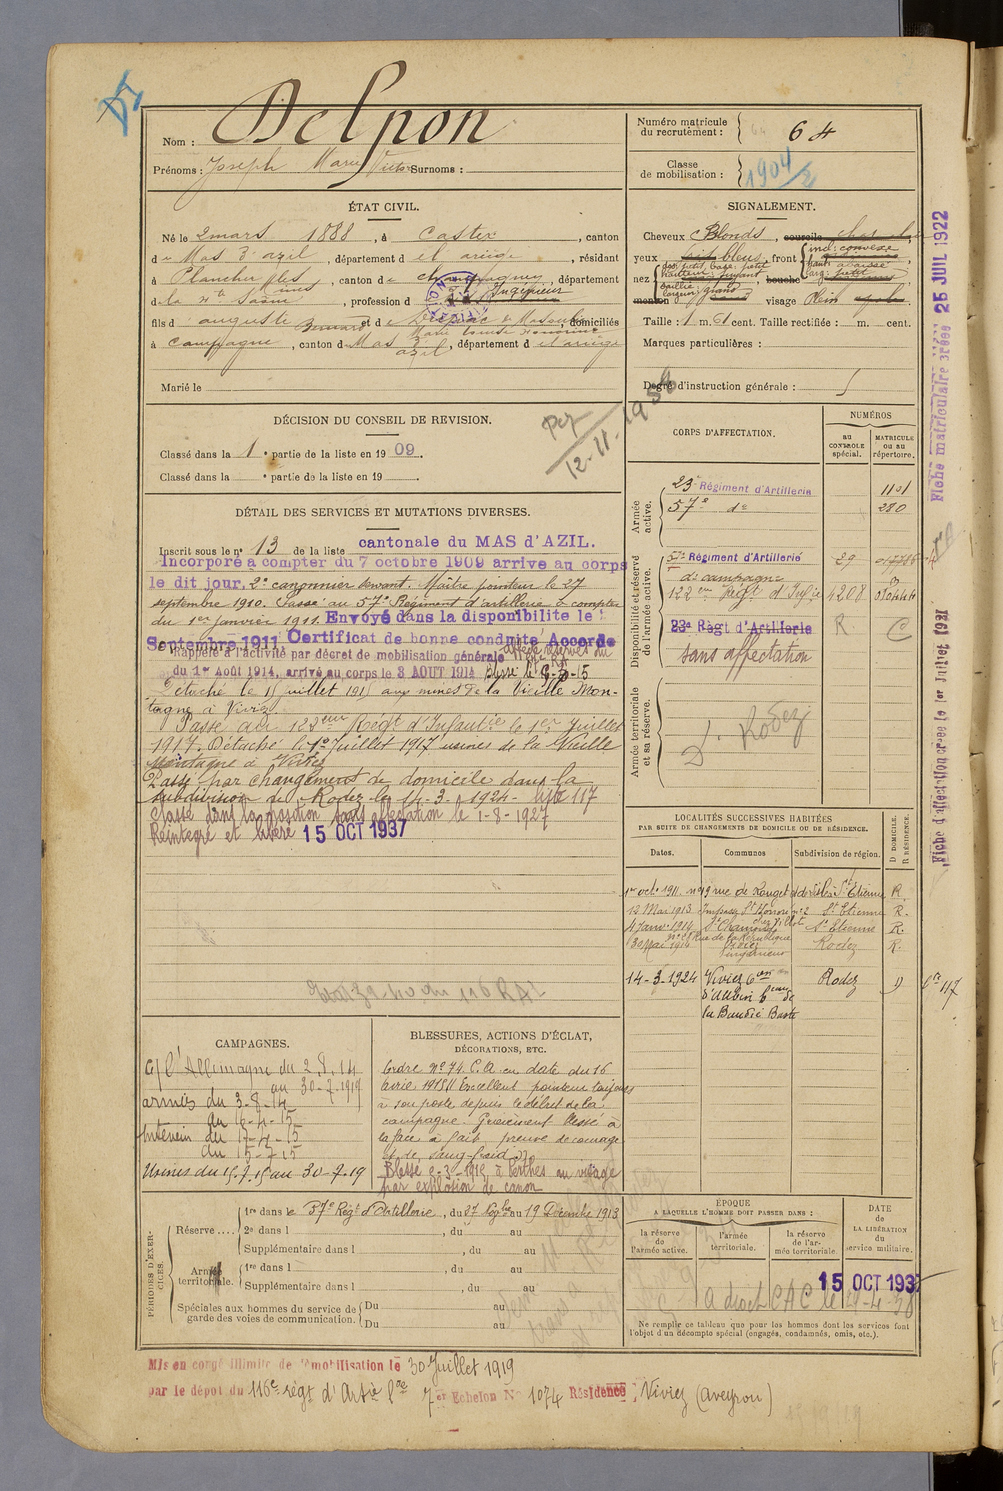 Nom : Delpon
Prénoms : Joseph Marie Victor Surnoms :
Numéro matricule du recrutement : 64
Classe de mobilisation : 1904/2
ÉTAT CIVIL.
Né le 2 mars 1888, à Castex, canton
du Mas d'azil, département d el ariège, résidant
à Plancher les mines, canton de champagney, département
d la Hte Saône, profession d Ingénieur
fils d auguste et d domiciliés
à Campagne, canton d Mas d'azil, département d el ariège
Marié le
SIGNALEMENT.
Cheveux Blonds,
yeux bleus, front incl: convexe
haut:
larg: petite
nez dos petit, base: petit
saillie
largeur grand
visage Plein
Taille : 1 m. 61 cent. Taille rectifiée : m. cent.
Marques particulières :
Degré d'instruction générale :
DÉCISION DU CONSEIL DE REVISION.
Classé dans la 1e partie de la liste en 1909.
Classé dans la e partie de la liste en 19 .
12-11-1934
DÉTAIL DES SERVICES ET MUTATIONS DIVERSES.
Inscrit sous le no 13 de la liste cantonale du MAS d'AZIL.
Incorporé à compter du 7 octobre 1909 arrive au corps
le dit jour. 2e canonnier servant. Maître pointeur le 27
septembre 1910. Passé au 57e Régiment d'artillerie à compter
du 1er janvier 1911. Envoyé dans la disponibilité le
Septembre 1911. Certificat de bonne conduite Accordé
Rappelé à l'activité par décret de mobilisation générale
du 1er Août 1914, arrivé au corps le 3 AOUT 1914 Blessé le 6-3-15
Détaché le 15 juillet 1915 aux mines de la Vieille Mon-
tagne à Viviez
Passé au 122eme Regt d'Infanterie le 1er Juillet
1917. Détaché le 1er Juillet 1917 usines de la Vieille
Montagne à Viviez
Passé par changement de domicile dans la
subdivision de Rodez le 14-3-1924 - liste 117
Classé dans la position sans affectation le 1-8-1927
Réintégré et libéré 15 OCT 1937
CORPS D'AFFECTATION.
NUMÉROS
AU CONTROLE SPÉCIAL.
MATRICULE OU AU RÉPERTOIRE.
Armée active.
23e Régiment d'Artillerie 1101
57e do 280
Disponibilité et réserve de l'armée active.
57e Régiment d'Artillerie 29
de campagne
122eme Regt d'Infie 4208
23e Régt d'Artillerie R C
sans affectation
Armée territoriale et sa réserve.
Dt Rodez
LOCALITÉS SUCCESSIVES HABITÉES
PAR SUITE DE CHANGEMENTS DE DOMICILE OU DE RÉSIDENCE.
Dates. Communes Subdivision de région. D DOMICILE. R RÉSIDENCE.
1er octe 1911 no 19 rue de Rouget de Lisle St Etienne R.
12 Mai 1913 Impasse St Honoré no 2 St Etienne R.
4 Janv. 1914 St Chamond St Etienne R.
30 Mai 1914 Rue de la République Rodez R.
14-3-1924 Viviez Con Rodez D
d'Aubin
Lre 117
CAMPAGNES.
C/ l'Allemagne du 2.8.14
au 30-7-1919
armées du 3-8-14
au 16-4-15
Intérieur du 17-4-15
au 15-7-15
Usines du 15.7.15 au 30-7-19
BLESSURES, ACTIONS D'ÉCLAT,
DÉCORATIONS, ETC.
Ordre no 74 C.A. en date du 16
avril 1915 "Excellent pointeur toujours
à son poste depuis le début de la
campagne. Grièvement blessé à
la face a fait preuve de courage
et de sang-froid"
Blessé 6-3-1915 à Perthes au visage
par explosion de canon
PÉRIODES D'EXERCICES.
Réserve.... 1re dans le 57e Régt d'Artillerie, du 27 Novbre au 19 Décembre 1913
2e dans l , du au
Supplémentaire dans l , du au
Armée territoriale. 1re dans l , du au
Supplémentaire dans l , du au
Spéciales aux hommes du service de garde des voies de communication. Du au
Du au
ÉPOQUE
A LAQUELLE L'HOMME DOIT PASSER DANS :
la réserve de l'armée active.
l'armée territoriale.
la réserve de l'armée territoriale.
DATE de LA LIBÉRATION du service militaire.
15 OCT 1937
Ne remplir ce tableau que pour les hommes dont les services font
l'objet d'un décompte spécial (engagés, condamnés, omis, etc.).
Mis en congé illimité de démobilisation le 30 Juillet 1919
par le dépôt du 116e régt d'Artie Lde 7er Echelon No 1074 Résidence Viviez (Aveyron)
Fiche matriculaire créée 25 JUIL 1922
Fiche d'affectation créée le 1er Juillet 1931